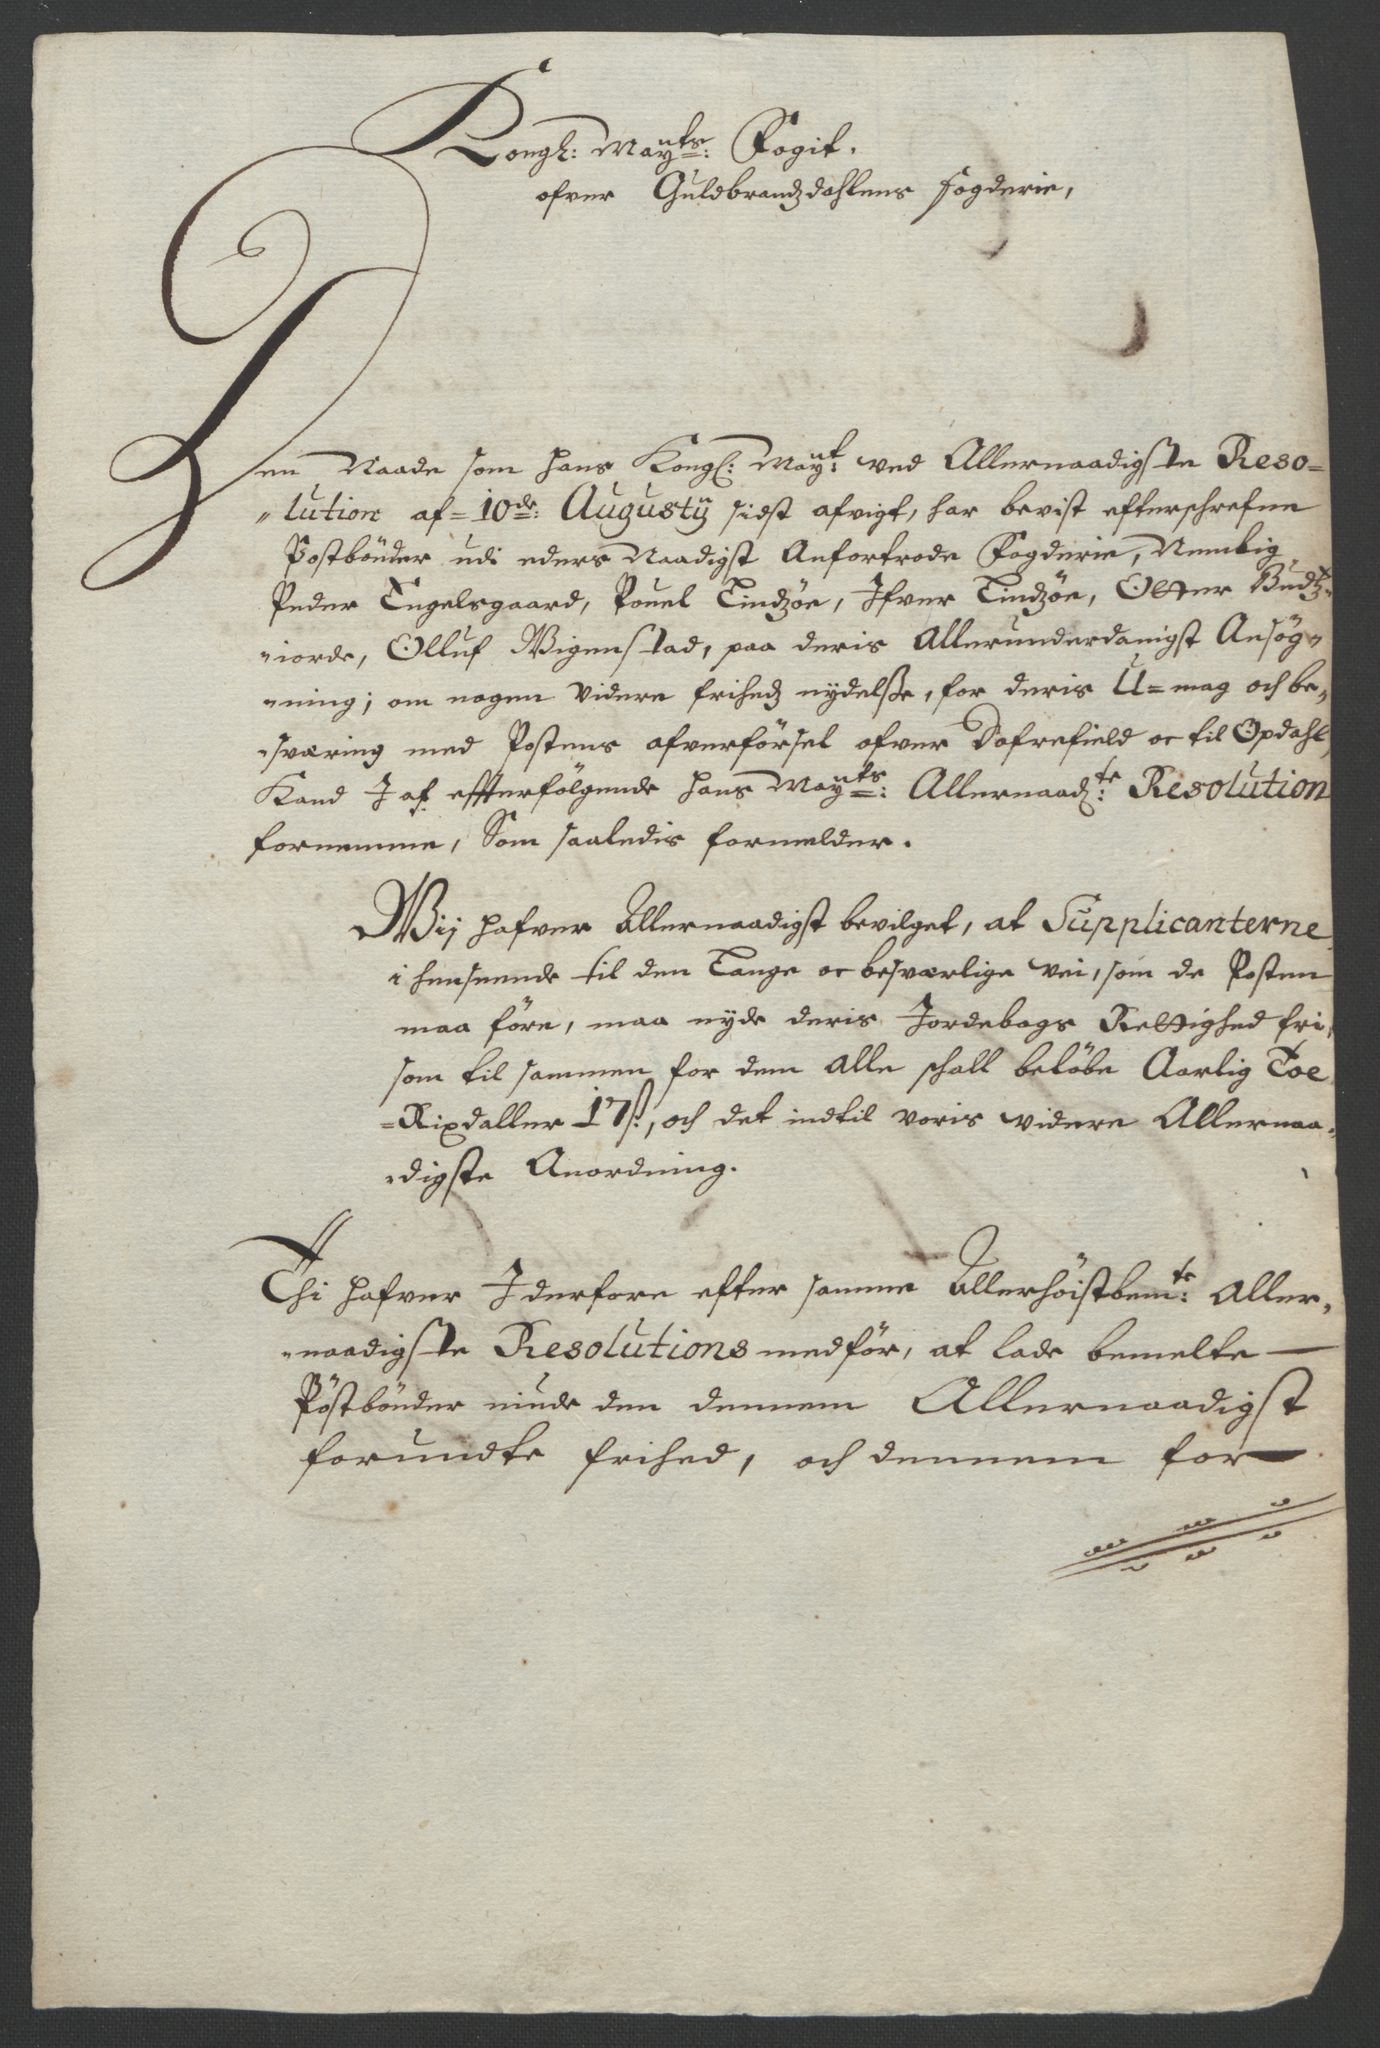 Kongl: Mayts: Fogit.
ofver Guldbrandzdahlens fogderie,
Den Naade som hans Kongl: Mayt: ved Allernaadigste Reso=
lution af 10de: Augustij sidst afvigt, har bevist efterschrefne
Postbönder udi eders Naadigst Anfortrode Fogderie, Nemblig
Peder Engelsgaard, Povel Tindzöe, Ifver Tindzöe, Otter Budz=
iorde, Olluf Vigenstad, paa deris Allerunderdanigst Ansög=
ning; om nogen videre frihedz nydelsse, for deris U=mag och be=
sværing med Postens afverförsel ofver Dofrefield oc til Opdahl,
Kand I af effterfölgende hans Mayts: Allernaadte: Resolution
fornemme, Som saaledis formelder.
Wij hafver Allernaadigst bevilget, at Supplicanterne
i henseende til den Lange oc besværlige vei, som de Posten
maa före, maa nyde deris Jordebogs Rettighed fri
som til sammen for dem alle schall belöbe Aarlig Toe
=Rixdaller 17 ß:, och det indtil voris videre Allernaa=
digste Anordning.
Thi hafver I derfore efter samme Allerhöistbemte: Aller=
naadigste Resolutions medför, at lade bemelte
Postbönder niude den dennem Allernaadigst
forundte frihed, och dennem for